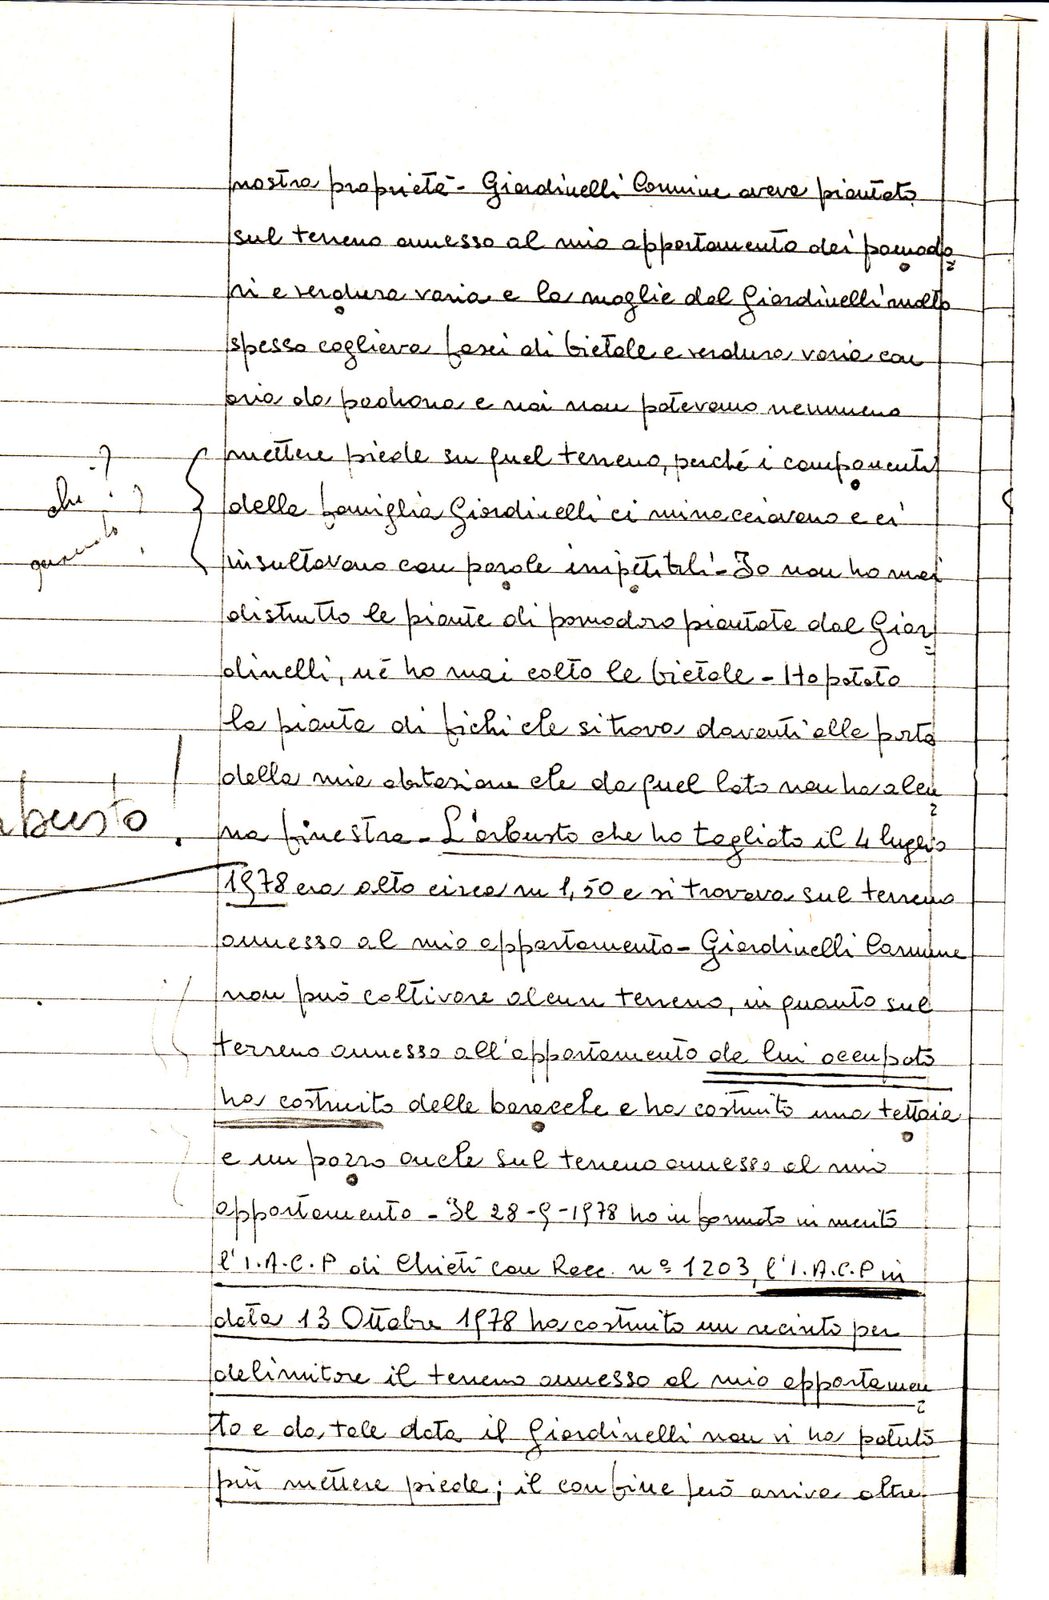 nostra proprietà - Giardinelli Carmine aveva piantato
sul terreno annesso al mio appartamento dei pomodo
ri e verdura varia e la moglie del Giardinelli molto
spesso coglieva fasci di bietole e verdura varia con
aria da padrona e noi non potevamo nemmeno
mettere piede su quel terreno, perché i componenti
della famiglia Giardinelli ci minacciavano e ci
insultavano con parole irripetibili - Io non ho mai
distrutto le piante di pomodoro piantate dal Giar
dinelli, né ho mai colto le bietole - Ho potato
la pianta di fichi che si trova davanti alla porta
della mia abitazione che da quel lato non ha alcu
na finestra - L'arbusto che ho tagliato il 4 luglio
1978 era alto circa m 1,50 e si trovava sul terreno
annesso al mio appartamento - Giardinelli Carmine
non può coltivare alcun terreno, in quanto sul
terreno annesso all'appartamento da lui occupato
ha costruito delle baracche e ha costruito una tettoia
e un pozzo anche sul terreno annesso al mio
appartamento - Il 28-9-1978 ho informato in merito
l'I.A.C.P di Chieti con Racc. n° 1203, l'I.A.C.P in
data 13 Ottobre 1978 ha costruito un recinto per
delimitare il terreno annesso al mio appartamen
to e da tale data il Giardinelli non vi ha potuto
più mettere piede; il confine però arriva oltre
chi ?
quando ?
arbusto !